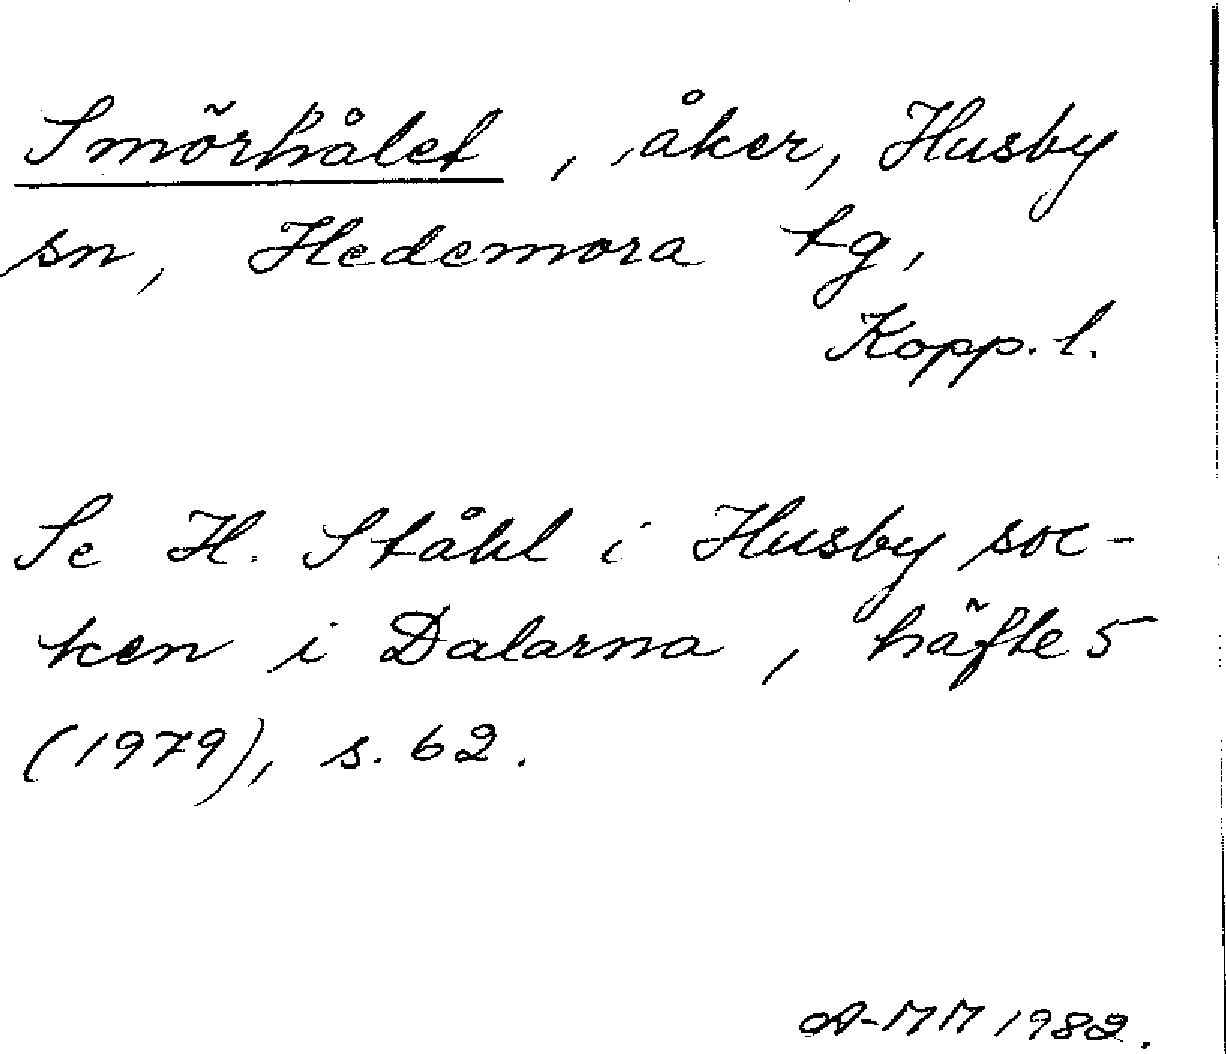 Smörhålet, åker, Husby
sn, Hedemora tg,
Kopp. l.
Se H. Ståhl i Husby soc-
ken i Dalarna, häfte 5
(1979), s. 62.
A-MM 1982.